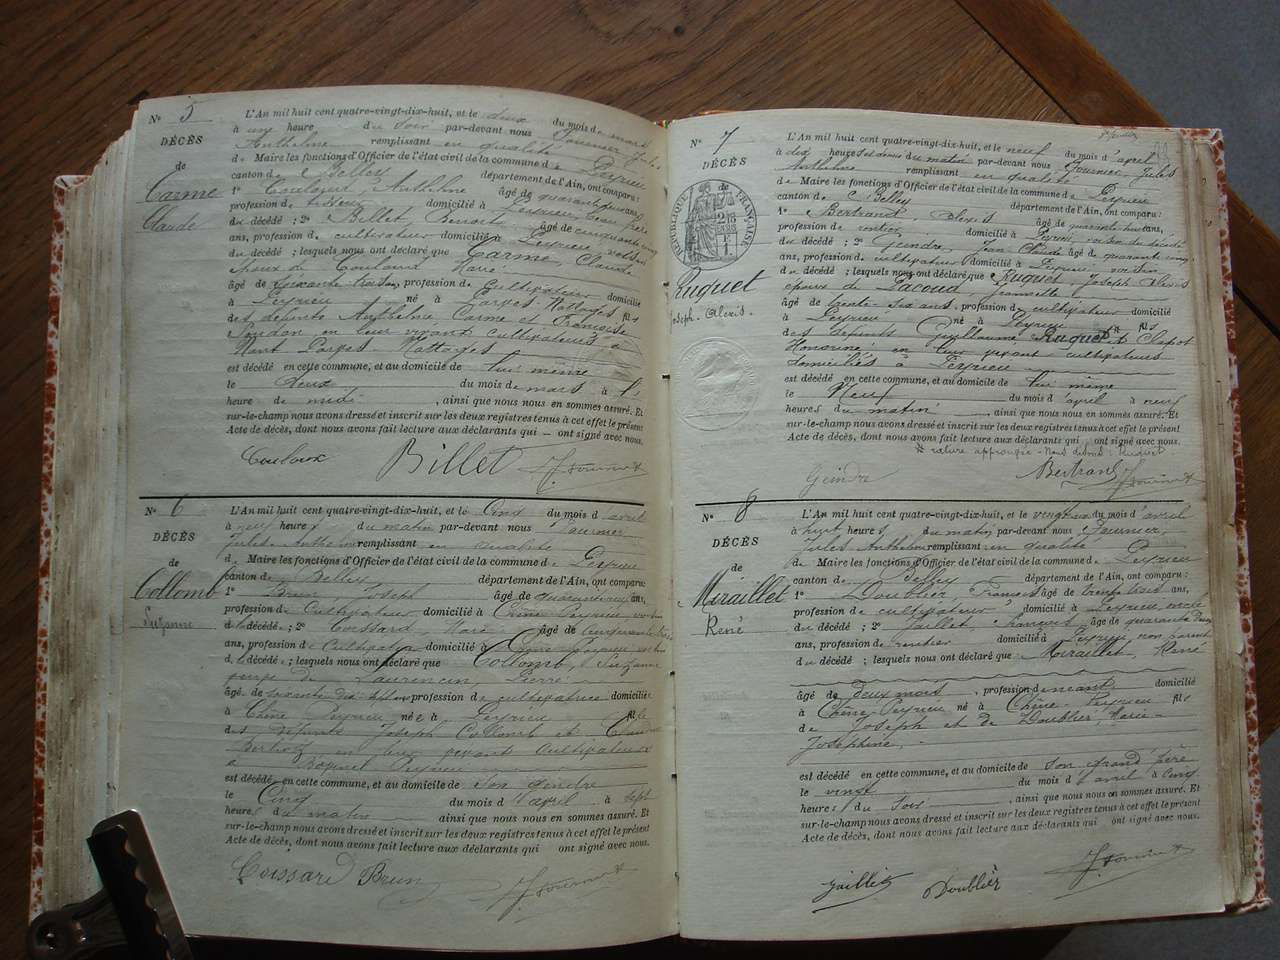 N° 5
DÉCÈS
de
Carme
Claude
L'An mil huit cent quatre-vingt-dix-huit, et le deux du mois de mars
à une heure du soir par-devant nous Fournier Jules
Anthelme remplissant en qualité
de Maire les fonctions d'Officier de l'état civil de la commune de Peyrieu
canton de Belley département de l'Ain, ont comparu:
1° Couloux, Anthelme âgé de quarante
profession de domicilié à Peyrieu, beau frère
du décédé; 2° Billet Benoit âgé de cinquante cinq
ans, profession de cultivateur domicilié à Peyrieu voisin
du décédé; lesquels nous ont déclaré que Carme, Claude
époux de Couloux Marie
âgé de soixante ans, profession de Cultivateur domicilié
à Peyrieu né à Parves-Nattages fils
des défunts Anthelme Carme et Françoise
en leur vivant cultivateurs à
Parves-Nattages
est décédé en cette commune, et au domicile de lui même
le deux du mois de mars à
heure de midi, ainsi que nous nous en sommes assuré. Et
sur-le-champ nous avons dressé et inscrit sur les deux registres tenus à cet effet le présent
Acte de décès, dont nous avons fait lecture aux déclarants qui ont signé avec nous.
Couloux Billet J. Fournier
N° 6
DÉCÈS
de
Collomb
Suzanne
L'An mil huit cent quatre-vingt-dix-huit, et le Cinq du mois d'avril
à neuf heures du matin par-devant nous Fournier
Jules Anthelme remplissant en qualité
de Maire les fonctions d'Officier de l'état civil de la commune de Peyrieu
canton de Belley département de l'Ain, ont comparu:
1° Brun Joseph âgé de ans,
profession de Cultivateur domicilié à Chêne Peyrieu voisin
de la décédée; 2° Coissard, Marie âgé de Cinquante trois
ans, profession de Cultivateur domicilié à Chêne Peyrieu
de la décédée; lesquels nous ont déclaré que Collomb, Suzanne
veuve de Laurencin, Pierre
âgée de soixante dix ans, profession de cultivatrice domiciliée
à Chêne Peyrieu née à Peyrieu fille
des défunts Joseph Collomb et Claudine
Berlioz en leur vivant Cultivateurs
à Peyrieu
est décédée en cette commune, et au domicile de son gendre
le Cinq du mois d'avril à sept
heures du matin, ainsi que nous nous en sommes assuré. Et
sur-le-champ nous avons dressé et inscrit sur les deux registres tenus à cet effet le présent
Acte de décès, dont nous avons fait lecture aux déclarants qui ont signé avec nous.
Coissard Brun J. Fournier
N° 7
DÉCÈS
RÉPUBLIQUE FRANÇAISE
Ruquet
Joseph-Alexis.
L'An mil huit cent quatre-vingt-dix-huit, et le neuf du mois d'avril
à dix heures du matin par-devant nous Fournier, Jules
Anthelme remplissant en qualité
de Maire les fonctions d'Officier de l'état civil de la commune de Peyrieu
canton de Belley département de l'Ain, ont comparu:
1° Bertrand, Alexis âgé de quarante huit ans,
profession de rentier domicilié à Peyrieu, voisin du décédé
du décédé; 2° Geindre, Jean Claude âgé de quarante cinq
ans, profession de cultivateur domicilié à Peyrieu voisin
du décédé; lesquels nous ont déclaré que Ruquet, Joseph Alexis
époux de Pacoud
âgé de trente-six ans, profession de cultivateur domicilié
à Peyrieu né à Peyrieu fils
des défunts Guillaume Ruquet et Clapot
Honorine en leur vivant cultivateurs
domiciliés à Peyrieu
est décédé en cette commune, et au domicile de lui même
le Neuf du mois d'avril à neuf
heures du matin, ainsi que nous nous en sommes assuré. Et
sur-le-champ nous avons dressé et inscrit sur les deux registres tenus à cet effet le présent
Acte de décès, dont nous avons fait lecture aux déclarants qui ont signé avec nous.
rature approuvée - Ruquet
Geindre Bertrand J. Fournier
N° 8
DÉCÈS
de
Miraillet
René
L'An mil huit cent quatre-vingt-dix-huit, et le vingt un du mois d'avril
à huit heures du matin par-devant nous Fournier,
Jules Anthelme remplissant en qualité
de Maire les fonctions d'Officier de l'état civil de la commune de Peyrieu
canton de Belley département de l'Ain, ont comparu:
1° Doublier, François âgé de trente trois ans,
profession de cultivateur domicilié à Peyrieu oncle
du décédé; 2° Jaillet François âgé de quarante
ans, profession de rentier domicilié à Peyrieu, non parent
du décédé; lesquels nous ont déclaré que Miraillet, René
âgé de deux mois, profession domicilié
à Chêne-Peyrieu né à Chêne-Peyrieu fils
de Joseph et de Doublier, Marie-
Joséphine,
est décédé en cette commune, et au domicile de son grand père
le vingt du mois d'avril à cinq
heures du soir, ainsi que nous nous en sommes assuré. Et
sur-le-champ nous avons dressé et inscrit sur les deux registres tenus à cet effet le présent
Acte de décès, dont nous avons fait lecture aux déclarants qui ont signé avec nous.
Jaillet Doublier J. Fournier